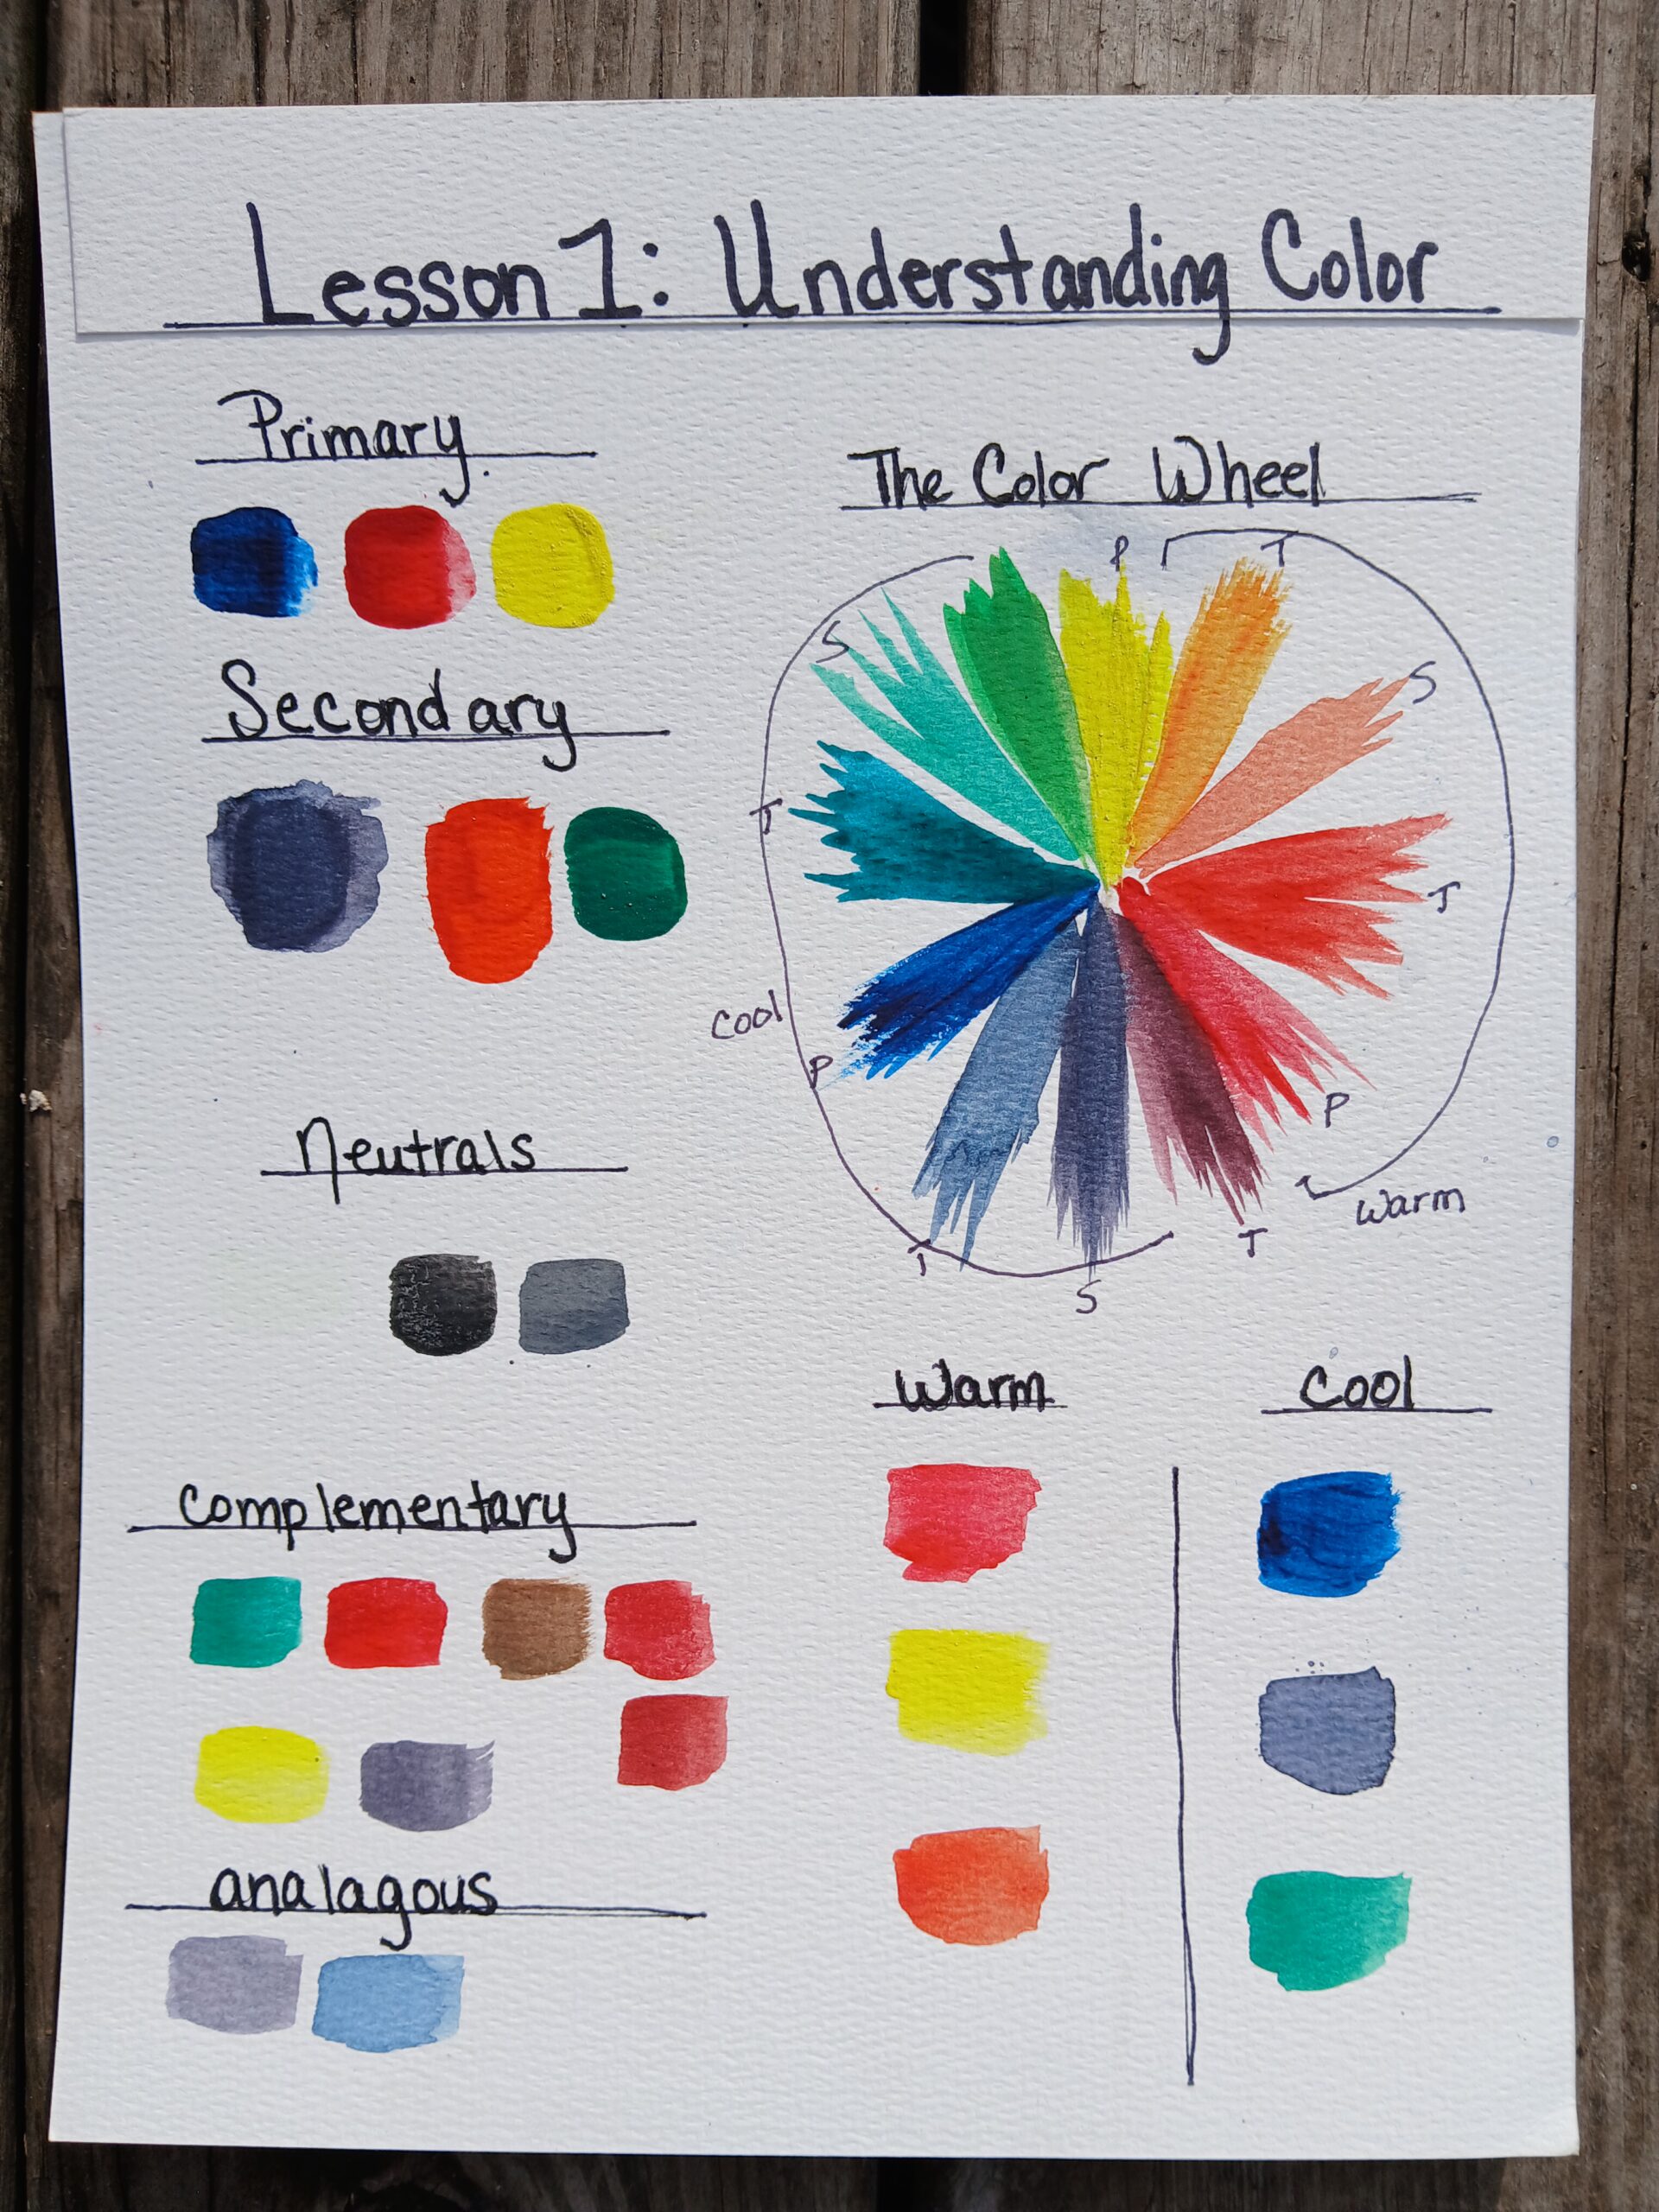 Lesson 1: Understanding Color
Primary
Secondary
Neutrals
Complementary
analagous
The Color Wheel
P
T
S
T
P
Warm
T
S
T
P
Cool
T
S
Warm
Cool